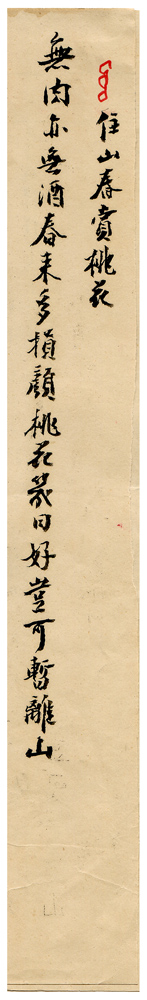 住山春賞桃花
無肉亦無酒春来多損顏桃花幾日好豈可暫離山